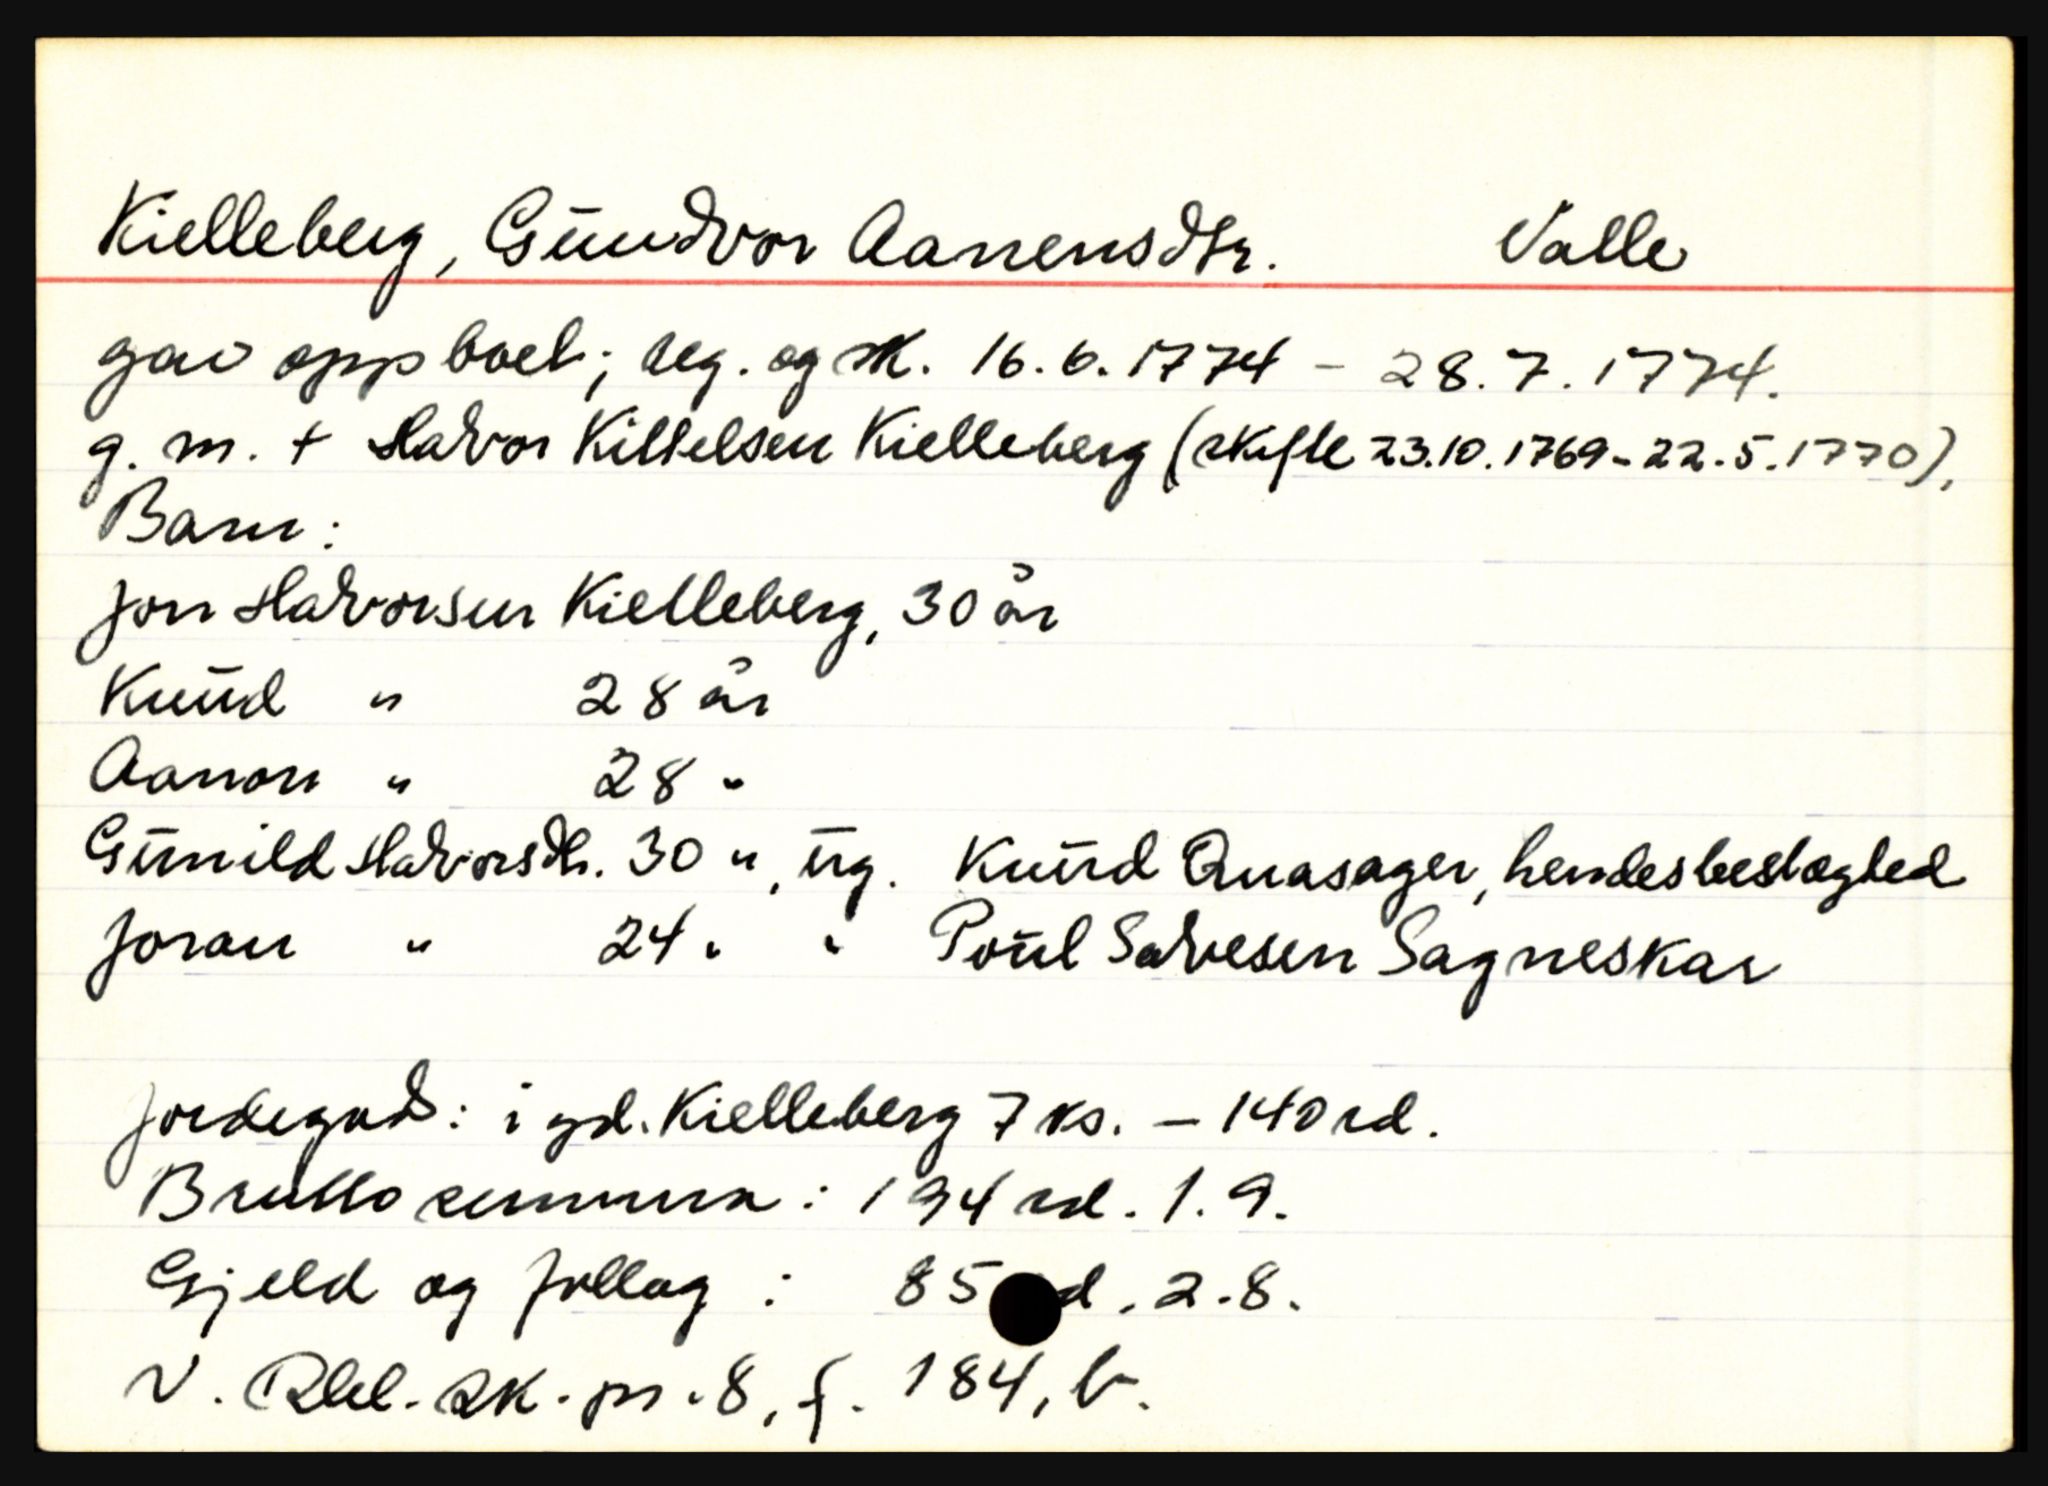 Kielleberg, Gundvor Aanensdtr. Valle
gav opp boet; reg. og sk. 16.6.1774 - 28.7.1774.
g. m. + Halvor Kittelsen Kielleberg (skifte 23.10.1769-22.5.1770),
Barn:
Jon Halvorsen Kielleberg, 30 år
Knud " 28 år
Aanon " 28 "
Gunild Halvorsdtr. 30 ", ug. Knud Quasager, hendes beslægted
Joran " 24 " " Poul Salvesen Sagneskar
Jordegods: i gd. Kielleberg 7 ks. - 140 rd.
Brutto summa: 194 rd. 1. 9.
Gjeld og follag: 85 rd. 2.8.
V. Rbl. sk. pr. 8, f. 184, b.